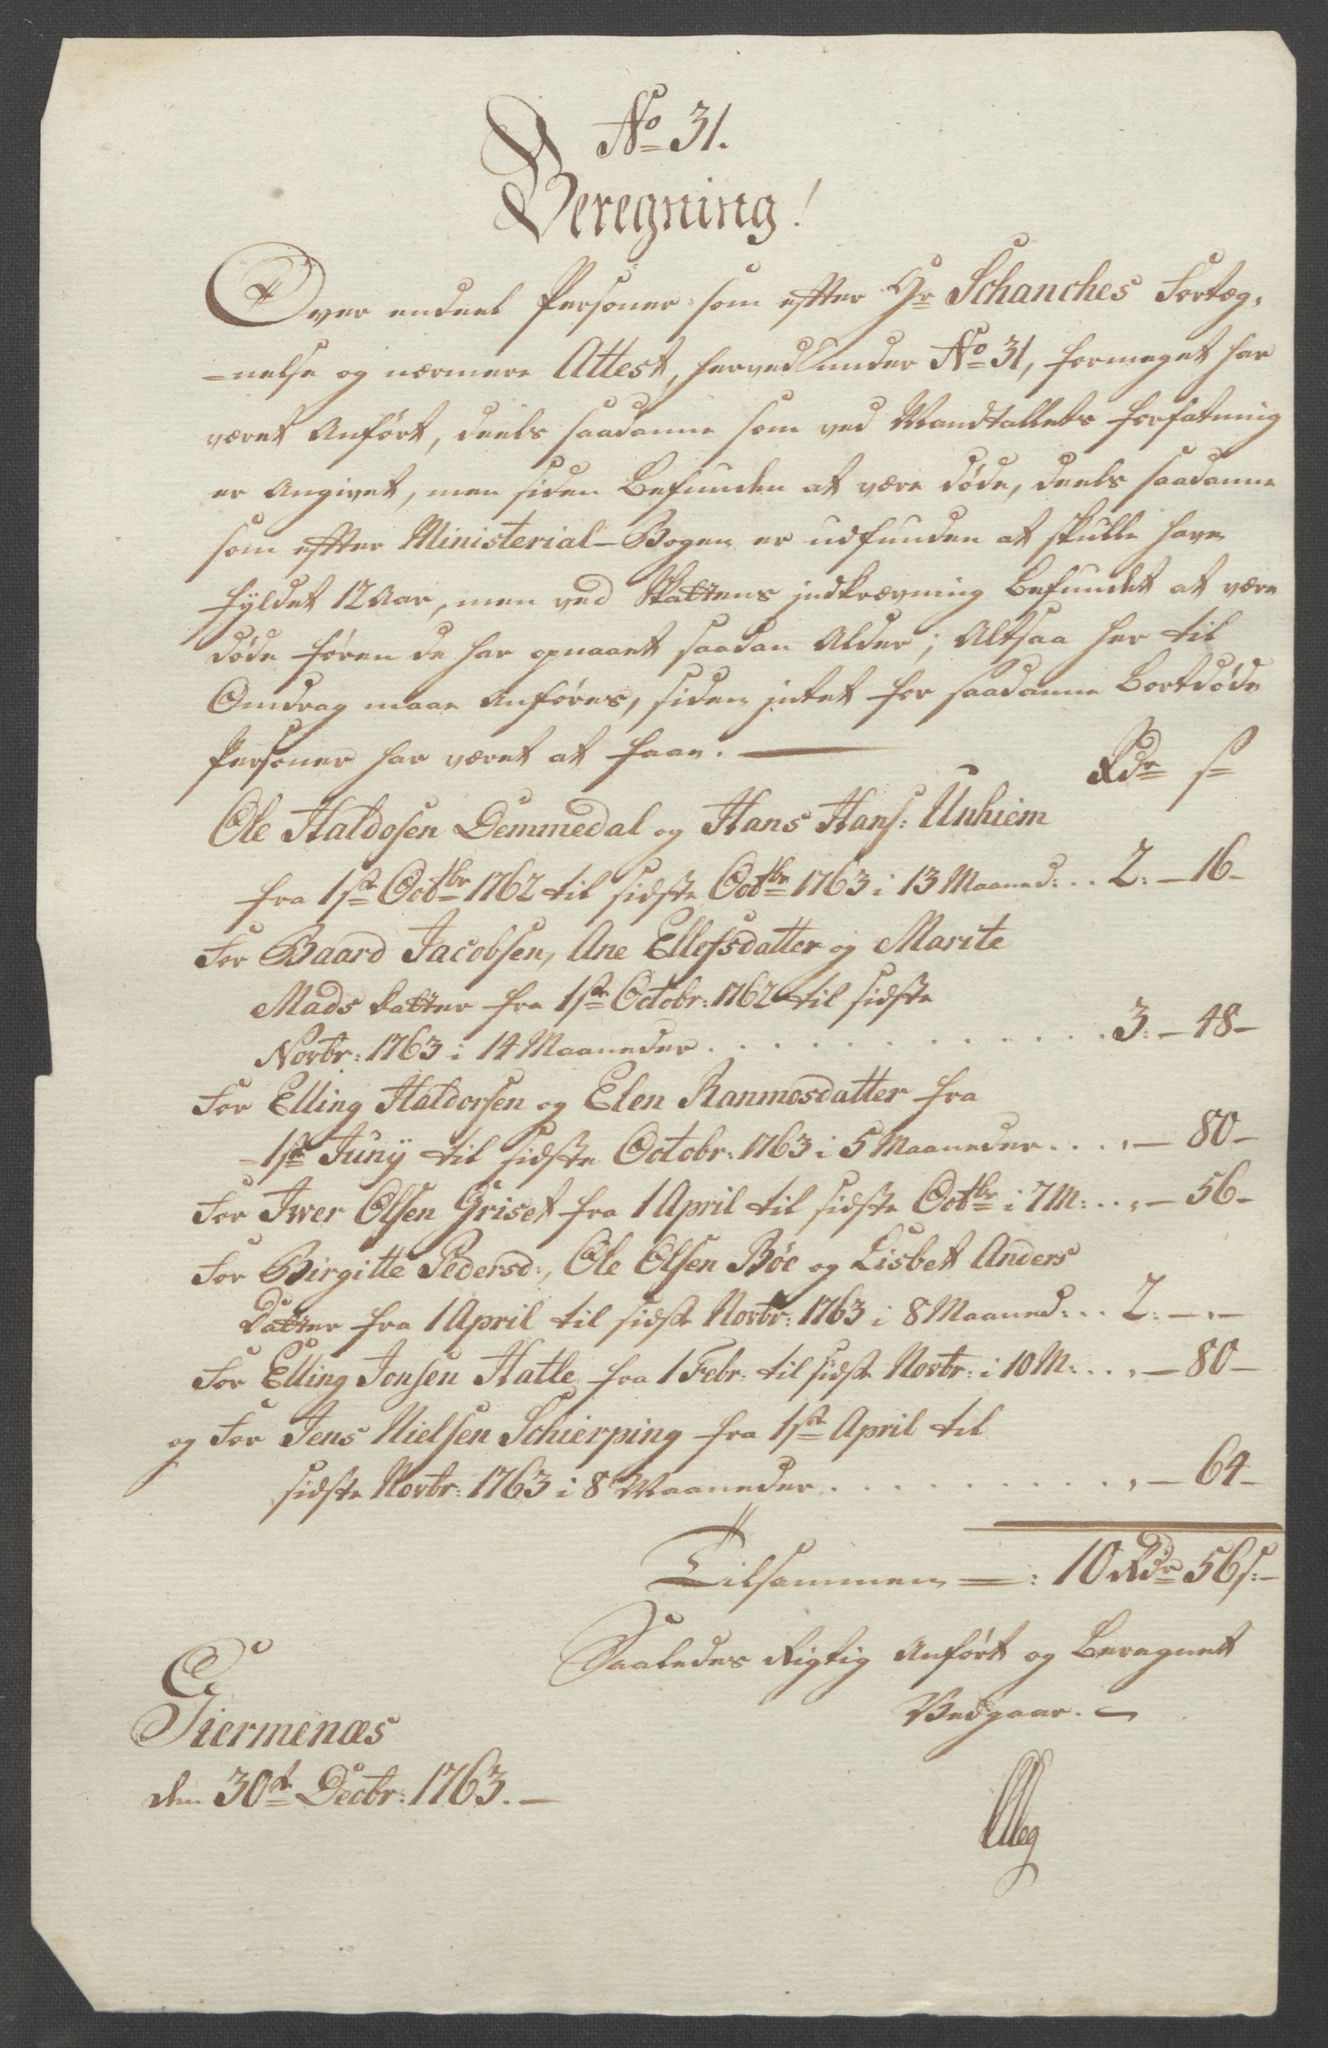 No 31.
Beregning!
Over endeel Personer som efter Hr Schanches Fortæg-
-nelse og nærmere Attest, herved under No 31, formeget har
været Anført, deels saadanne som ved Mandtallets forfatning
er Angivet, men siden Befunden at være døde, deels saadanne
som efter Ministerial-Bogen er udfunden at skulle have
fyldet 12 Aar, men ved Skattens indkrævning Befundet at være
døde føren de har opnaaet saadan Alder; Altsaa her til
Omdrag maae Anføres, siden intet for saadanne Bortdøde
Personer har været at faae. —
Rdr s
Ole Haldosen Demmedal og Hans Hans: Unhiem
fra 1ste Octbr 1762 til sidste Octbr 1763 i 13 Maaned: . . 2: — 16 -
For Baard Jacobsen, Ane Ellefsdatter og Marite
Mads datter fra 1ste Octobr: 1762 til sidste
Novbr: 1763 i 14 Maaneder . . . . . . . . . . . . 3: — 48 -
For Elling Haldorsen og Elen Ranmosdatter fra
- 1ste Junij til sidste Octobr: 1763 i 5 Maaneder . . . „ — 80 -
For Iwer Olsen Griset fra 1 April til sidste Octbr i 7 M: . . „ — 56 -
For Birgitte Pedersd:, Ole Olsen Böe og Lisbet Anders
Datter fra 1 April til sidste Novbr: 1763 i 8 Maaned: . . 2: — „ -
For Elling Jonsen Hatle fra 1 Febr: til sidste Novbr: i 10 M: . . „ — 80 -
og For Jens Nielsen Schierping fra 1ste April til
sidste Novbr: 1763 i 8 Maaneder . . . . . . . . . . „ — 64 -
Tilsammen —: 10 Rdr 56 s: -
Saaledes Rigtig Anført og Beregnet
Vedgaar. —
Giermenæs
den 30te Decbr: 1763. —